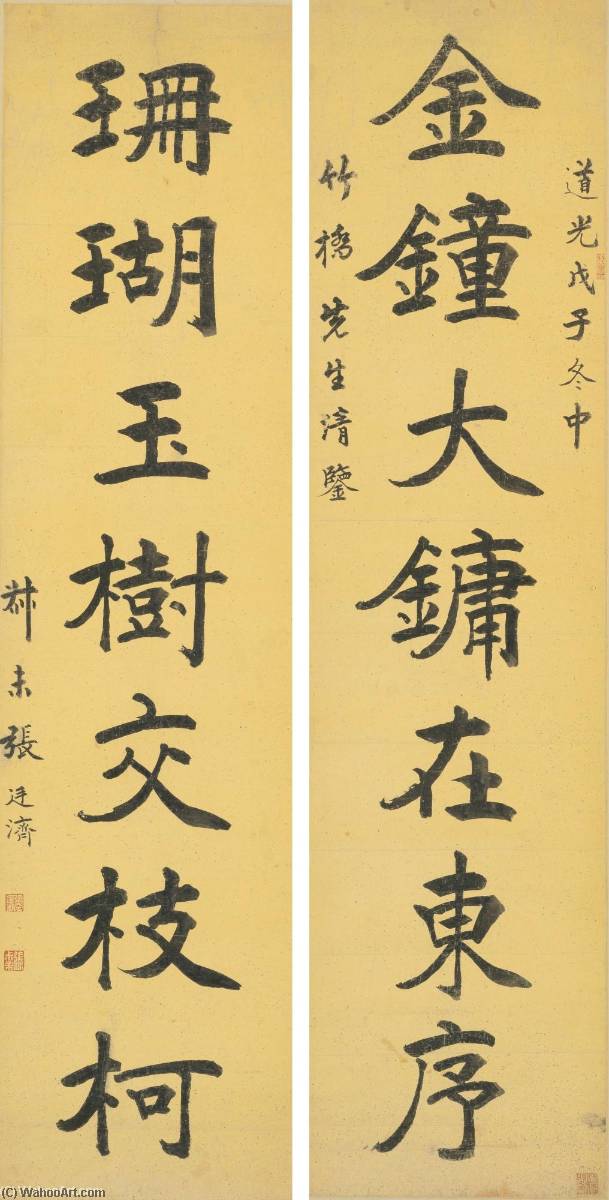 道光戊子冬中
金鐘大鏞在東序
竹橋先生清鑒
珊瑚玉樹交枝柯
未張廷濟
(C) WahooArt.com